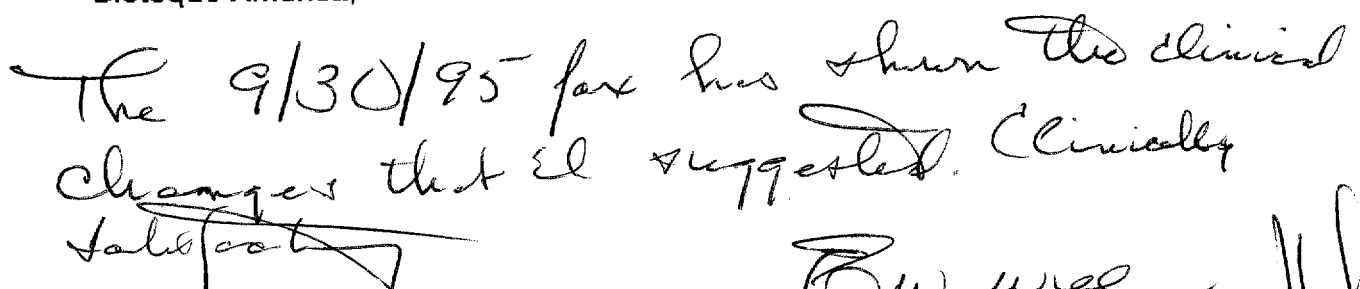 The 9/30/95 fax has shown the clinical
changes that El suggested. Clinically
satisfactory